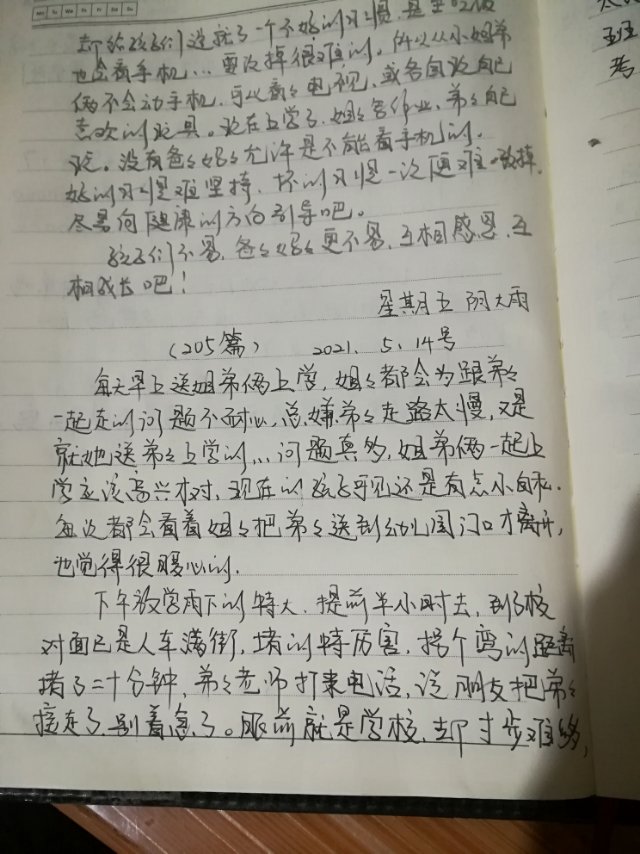 却给孩子们造就了一个不好的习惯,甚至吃饭
也会看手机…要改掉很难的。所以从小姐弟
俩不会动手机,可以看看电视,或各自玩自己
喜欢的玩具。现在上学了,姐姐写作业,弟弟自己
玩。没有爸爸妈妈允许是不能看手机的。
好的习惯难坚持,坏的习惯一次便难改掉,
尽量向健康的方向引导吧。
孩子们不易,爸爸妈妈更不易,互相感恩,互
相成长吧!
星期五 阴大雨
(205篇) 2021. 5. 14号
每天早上送姐弟俩上学,姐姐都会为跟弟弟
一起走的问题不耐心,总嫌弟弟走路太慢,又是
就她送弟弟上学的…问题真多,姐弟俩一起上
学应该高兴才对,现在的孩子可见还是有点小自私.
每次都会看着姐姐把弟弟送到幼儿园门口才离开,
也觉得很暖心的.
下午放学雨下的特大,提前半小时去,到学校
对面已是人车满街,堵的特厉害,拐个弯的距离
堵了二十分钟,弟弟老师打来电话,说朋友把弟弟
接走了别着急了。眼前就是学校,却寸步难移,
班
考